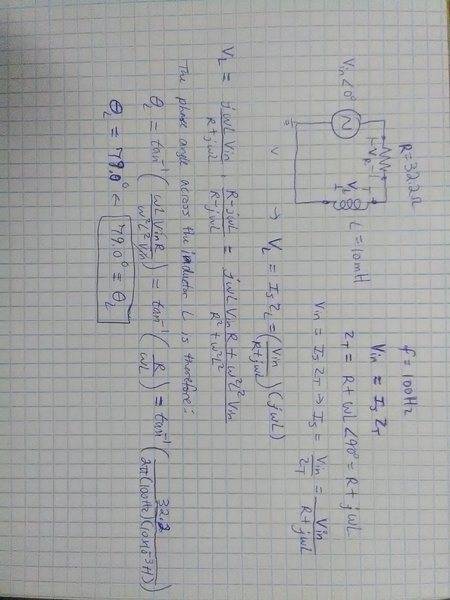 f = 100Hz
R = 32.2Ω
L = 10mH
Vin<0°
V_R
V_L
Vin = I_s Z_T
Z_T = R + ωL ∠90° = R + jωL
Vin = I_s Z_T → I_s = Vin/Z_T = Vin/(R + jωL)
→ V_L = I_s Z_L = (Vin/(R+jωL)) (jωL)
V_L = jωL Vin/(R+jωL) · (R-jωL)/(R-jωL) = (jωL Vin R + ω²L² Vin)/(R² + ω²L²)
The phase angle across the inductor L is therefore:
θ_L = tan⁻¹ (ωL Vin R/ω²L² Vin) = tan⁻¹ (R/ωL) = tan⁻¹ (32.2/2π(100Hz)(10x10⁻³H))
θ_L = 79.0° ← 79.0° = θ_L